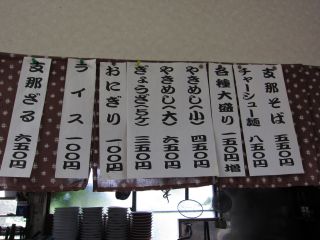 支那そば 五五〇円
チャーシュー麺 八五〇円
各種大盛り 一五〇円増
やきめし(小) 四五〇円
やきめし(大) 六五〇円
ぎょうざ(六ケ) 三五〇円
おにぎり 一〇〇円
ライス 一〇〇円
支那ざる 六五〇円